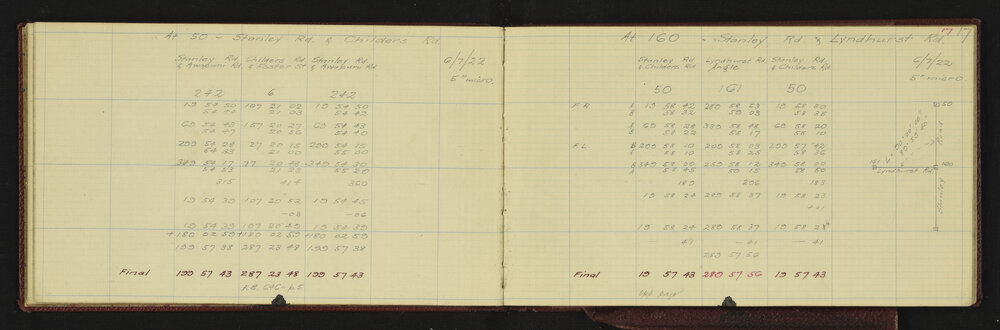 At 50 - Stanley Rd. & Childers Rd.
Stanley Rd. Childers Rd. Stanley Rd.
& Awapuni Rd. & Foster St & Awapuni Rd.
6/7/22
5" micro.
242 6 242
19 54 50 107 21 02 19 54 50
54 40 21 03 54 42
69 54 43 157 20 27 69 54 43
54 47 20 56 54 40
299 54 28 27 20 15 299 54 15
54 33 21 03 55 00
349 54 17 77 20 48 349 54 30
54 53 21 23 55 20
315 414 360
19 54 39 107 20 52 19 54 45
-03 -06
19 54 39 107 20 49 19 54 39
+180 02 59 +180 02 59 +180 02 59
199 57 38 287 23 48 199 57 38
Final 199 57 43 287 23 48 199 57 43
F.B. 646 - p.5
At 160 - Stanley Rd & Lyndhurst Rd.
17
Stanley Rd. Lyndhurst Rd. Stanley Rd.
& Childers Rd. Angle & Childers Rd.
6/7/22
5" micro.
50 161 50
F.R. A 19 58 42 289 58 53 19 58 00
B 58 32 59 03 58 38
A 69 58 28 339 58 48 69 58 20
B 58 22 58 17 58 10
F.L. B 299 58 10 209 58 03 299 57 42
A 58 10 58 25 58 36
B 349 58 00 259 58 12 349 58 00
A 58 45 50 15 58 50
189 296 183
19 58 24 289 58 37 19 58 23
+01
19 58 24 289 58 37 19 58 24
- 41 - 41 - 41
289 57 56
Final 19 57 43 289 57 56 19 57 43
50
161
160
Lyndhurst Rd.
Stanley
Road